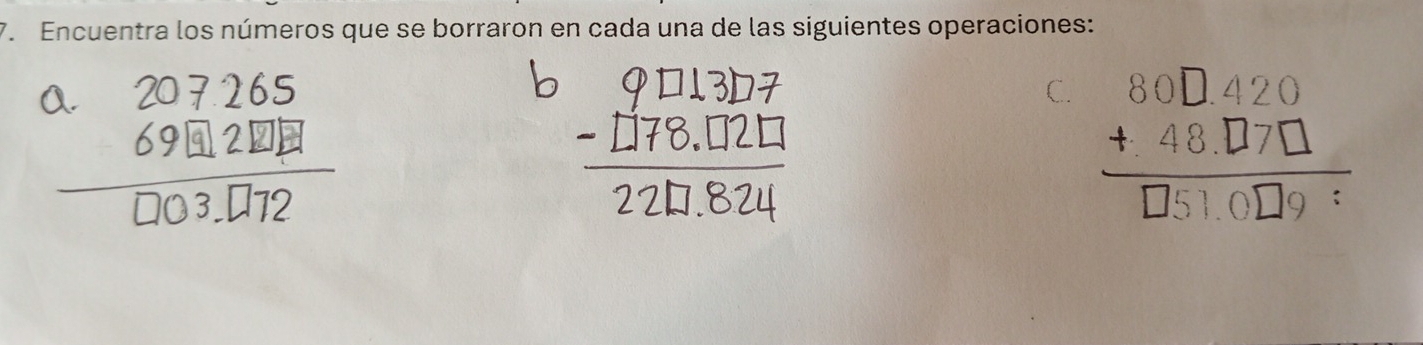 7. Encuentra los números que se borraron en cada una de las siguientes operaciones:
a. 207.265
69□2□□
□03.□72
b 9□13□7
- □78.□2□
22□.824
c. 80□.420
+ 48.□7□
□51.0□9 :